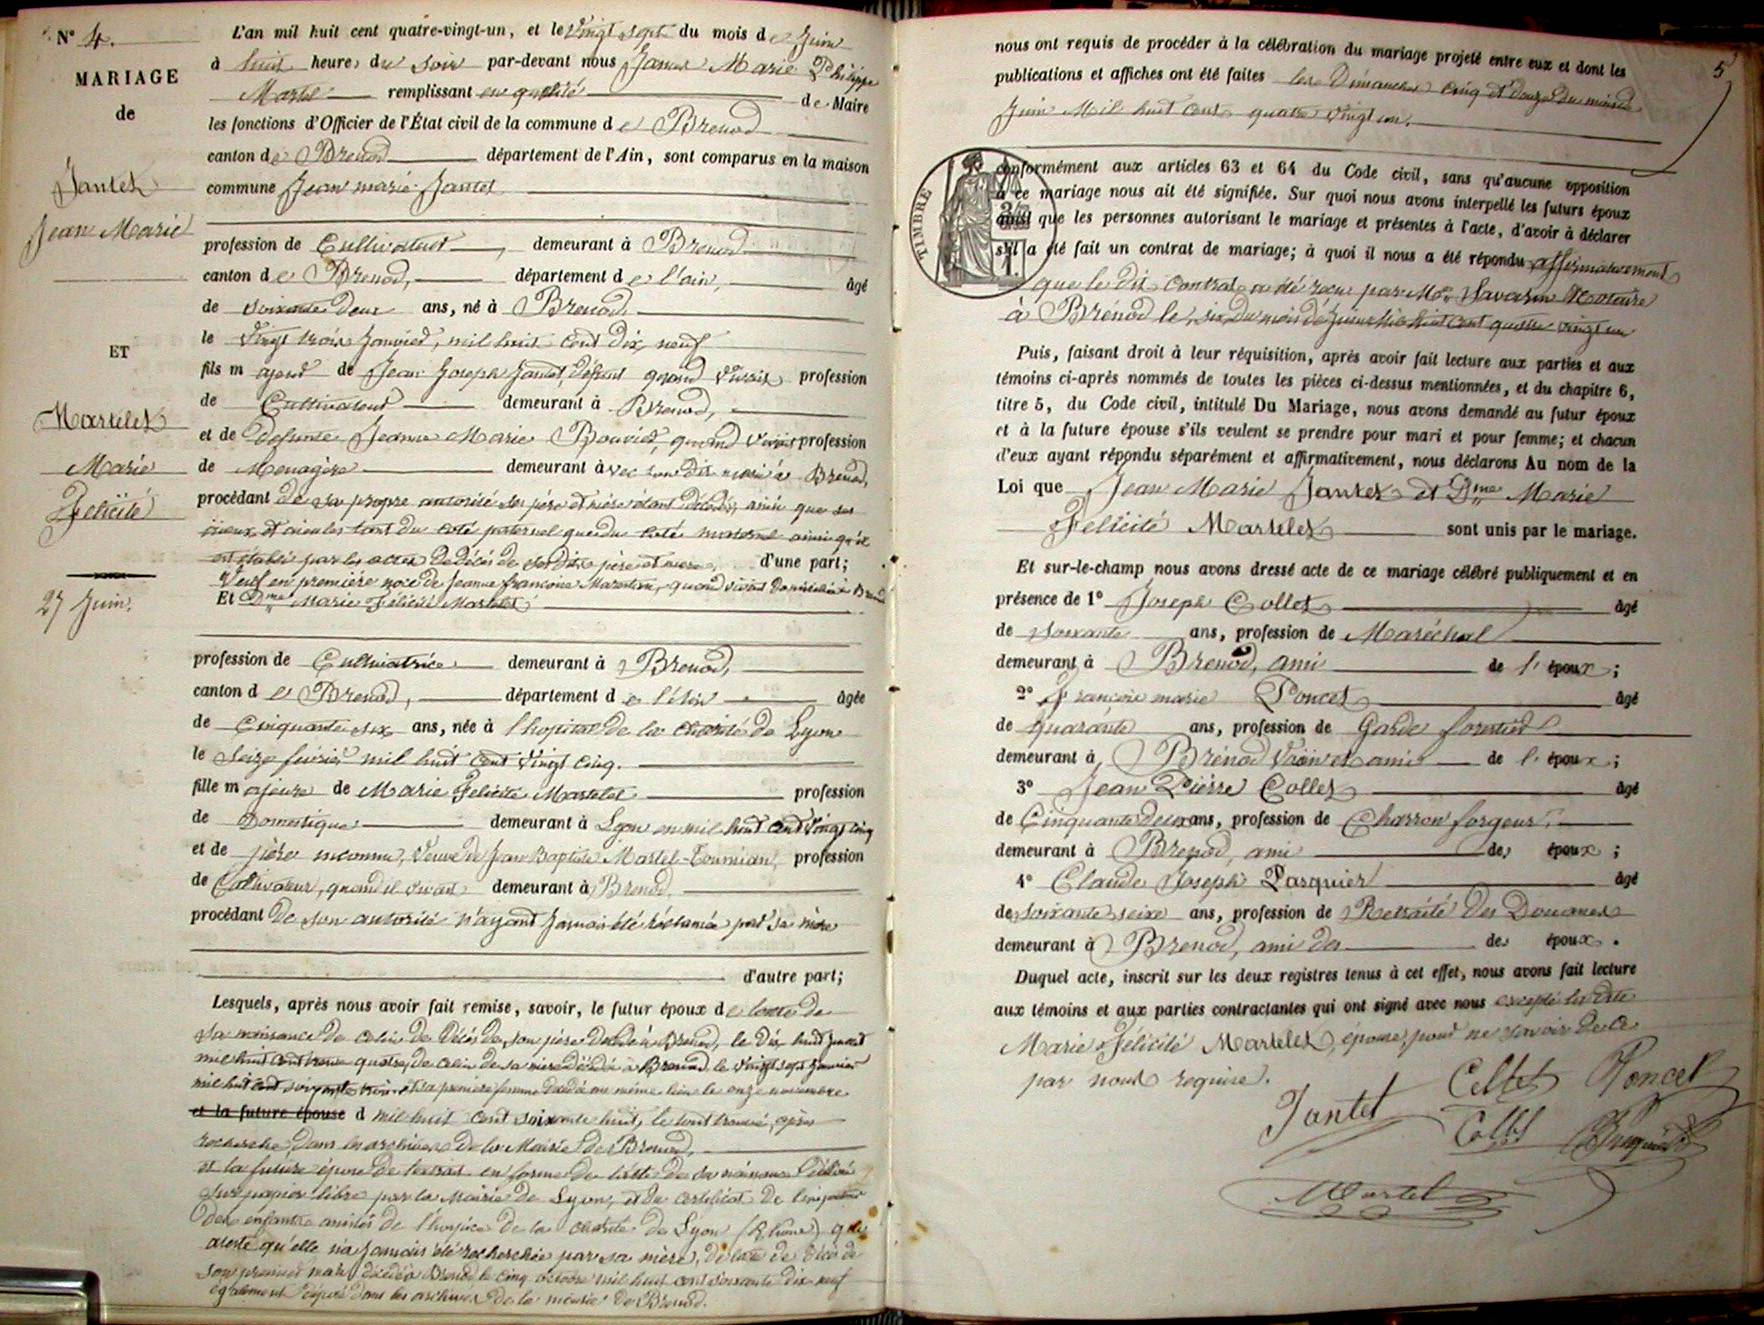 N° 4.
MARIAGE
de
Jantet
Jean Marie
ET
Martelet
Marie
Félicité
27 Juin.
L'an mil huit cent quatre-vingt-un, et le Vingt sept du mois de Juin
à huit heures du soir par-devant nous James Marie Philippe
Martel remplissant en qualité de Maire
les fonctions d'Officier de l'État civil de la commune de Brenod
canton de Brenod département de l'Ain, sont comparus en la maison
commune Jean marie Jantet
profession de Cultivateur, demeurant à Brenod
canton de Brenod, département de l'ain, âgé
de soixante deux ans, né à Brenod,
le Vingt trois Janvier, mil huit cent dix neuf
fils majeur de Jean Joseph Jantet, défunt quand vivait profession
de Cultivateur demeurant à Brenod,
et de defunte Jeanne Marie Bouvier, quand vivait profession
de Menagère demeurant avec son dit mari à Brenod,
procédant de sa propre autorité ses père et mère étant décédés, ainsi que ses
aïeux et aieules tant du coté paternel que du coté maternel ainsi qu'il
est établi par les actes de décès de ses dits père et mère, d'une part;
Veuf en première noce de Jeanne françoise, quand vivait domiciliée à Brenod
Et Dme Marie Félicité Martelet
profession de Cultivatrice demeurant à Brenod,
canton de Brenod, département de l'Ain âgée
de Cinquante six ans, née à l'hopital de la charité de Lyon
le seize février mil huit cent vingt cinq.
fille majeure de Marie Felicité Martelet profession
de Domestique demeurant à Lyon en mil huit cent vingt cinq
et de père inconnu, Veuve de Jean Baptiste Martel-Tournian, profession
de Cultivateur, quand il vivait demeurant à Brenod
procédant de son autorité n'ayant jamais été réclamée par sa mère
d'autre part;
Lesquels, après nous avoir fait remise, savoir, le futur époux de l'acte de
sa naissance de celui de décès de son père décédé à Brenod, le dix huit
mil huit cent trente quatre, de celui de sa mère décédée à Brenod le vingt sept Janvier
mil huit cent soixante trois, et sa première femme décédée au même lieu le onze novembre
et la future épouse d mil huit cent soixante huit, le tout trouvé, après
recherche, dans les archives de la Mairie de Brenod,
et la future épouse de l'extrait en forme de l'acte de sa naissance délivré
sur papier libre par la Mairie de Lyon, et du certificat de l'inspecteur
des enfants assistés de l'hospice de la charité de Lyon (Rhône) qui
atteste qu'elle n'a jamais été recherchée par sa mère, de l'acte de décès de
son premier mari décédé à Brenod, le cinq octobre mil huit cent soixante dix neuf
également déposé dans les archives de la mairie de Brenod.
5
nous ont requis de procéder à la célébration du mariage projeté entre eux et dont les
publications et affiches ont été faites les Dimanches cinq et douze du mois de
Juin Mil huit cent quatre vingt un.
TIMBRE
conformément aux articles 63 et 64 du Code civil, sans qu'aucune opposition
à ce mariage nous ait été signifiée. Sur quoi nous avons interpellé les futurs époux
ainsi que les personnes autorisant le mariage et présentes à l'acte, d'avoir à déclarer
s'il a été fait un contrat de mariage; à quoi il nous a été répondu affirmativement
que le dit Contrat a été reçu par Me Savarin Notaire
à Brénod le six du mois de Juin mil huit cent quatre vingt un
Puis, faisant droit à leur réquisition, après avoir fait lecture aux parties et aux
témoins ci-après nommés de toutes les pièces ci-dessus mentionnées, et du chapitre 6,
titre 5, du Code civil, intitulé Du Mariage, nous avons demandé au futur époux
et à la future épouse s'ils veulent se prendre pour mari et pour femme; et chacun
d'eux ayant répondu séparément et affirmativement, nous déclarons Au nom de la
Loi que Jean Marie Jantet et Dme Marie
Felicité Martelet sont unis par le mariage.
Et sur-le-champ nous avons dressé acte de ce mariage célébré publiquement et en
présence de 1° Joseph Collet âgé
de soixante ans, profession de Maréchal
demeurant à Brenod, ami de l'époux;
2° François marie Poncet âgé
de quarante ans, profession de Garde forestier
demeurant à Brénod Voisin et ami de l'époux;
3° Jean Pierre Collet âgé
de Cinquante deux ans, profession de Charron forgeur,
demeurant à Brenod, ami des époux;
4° Claude Joseph Pasquier âgé
de soixante seize ans, profession de Retraité des Douanes
demeurant à Brenod, ami des des époux.
Duquel acte, inscrit sur les deux registres tenus à cet effet, nous avons fait lecture
aux témoins et aux parties contractantes qui ont signé avec nous excepté la dite
Marie Félicité Martelet, épouse, pour ne savoir de ce
par nous requise.
Jantet Collet Poncet
Collet Pasquier
Martel